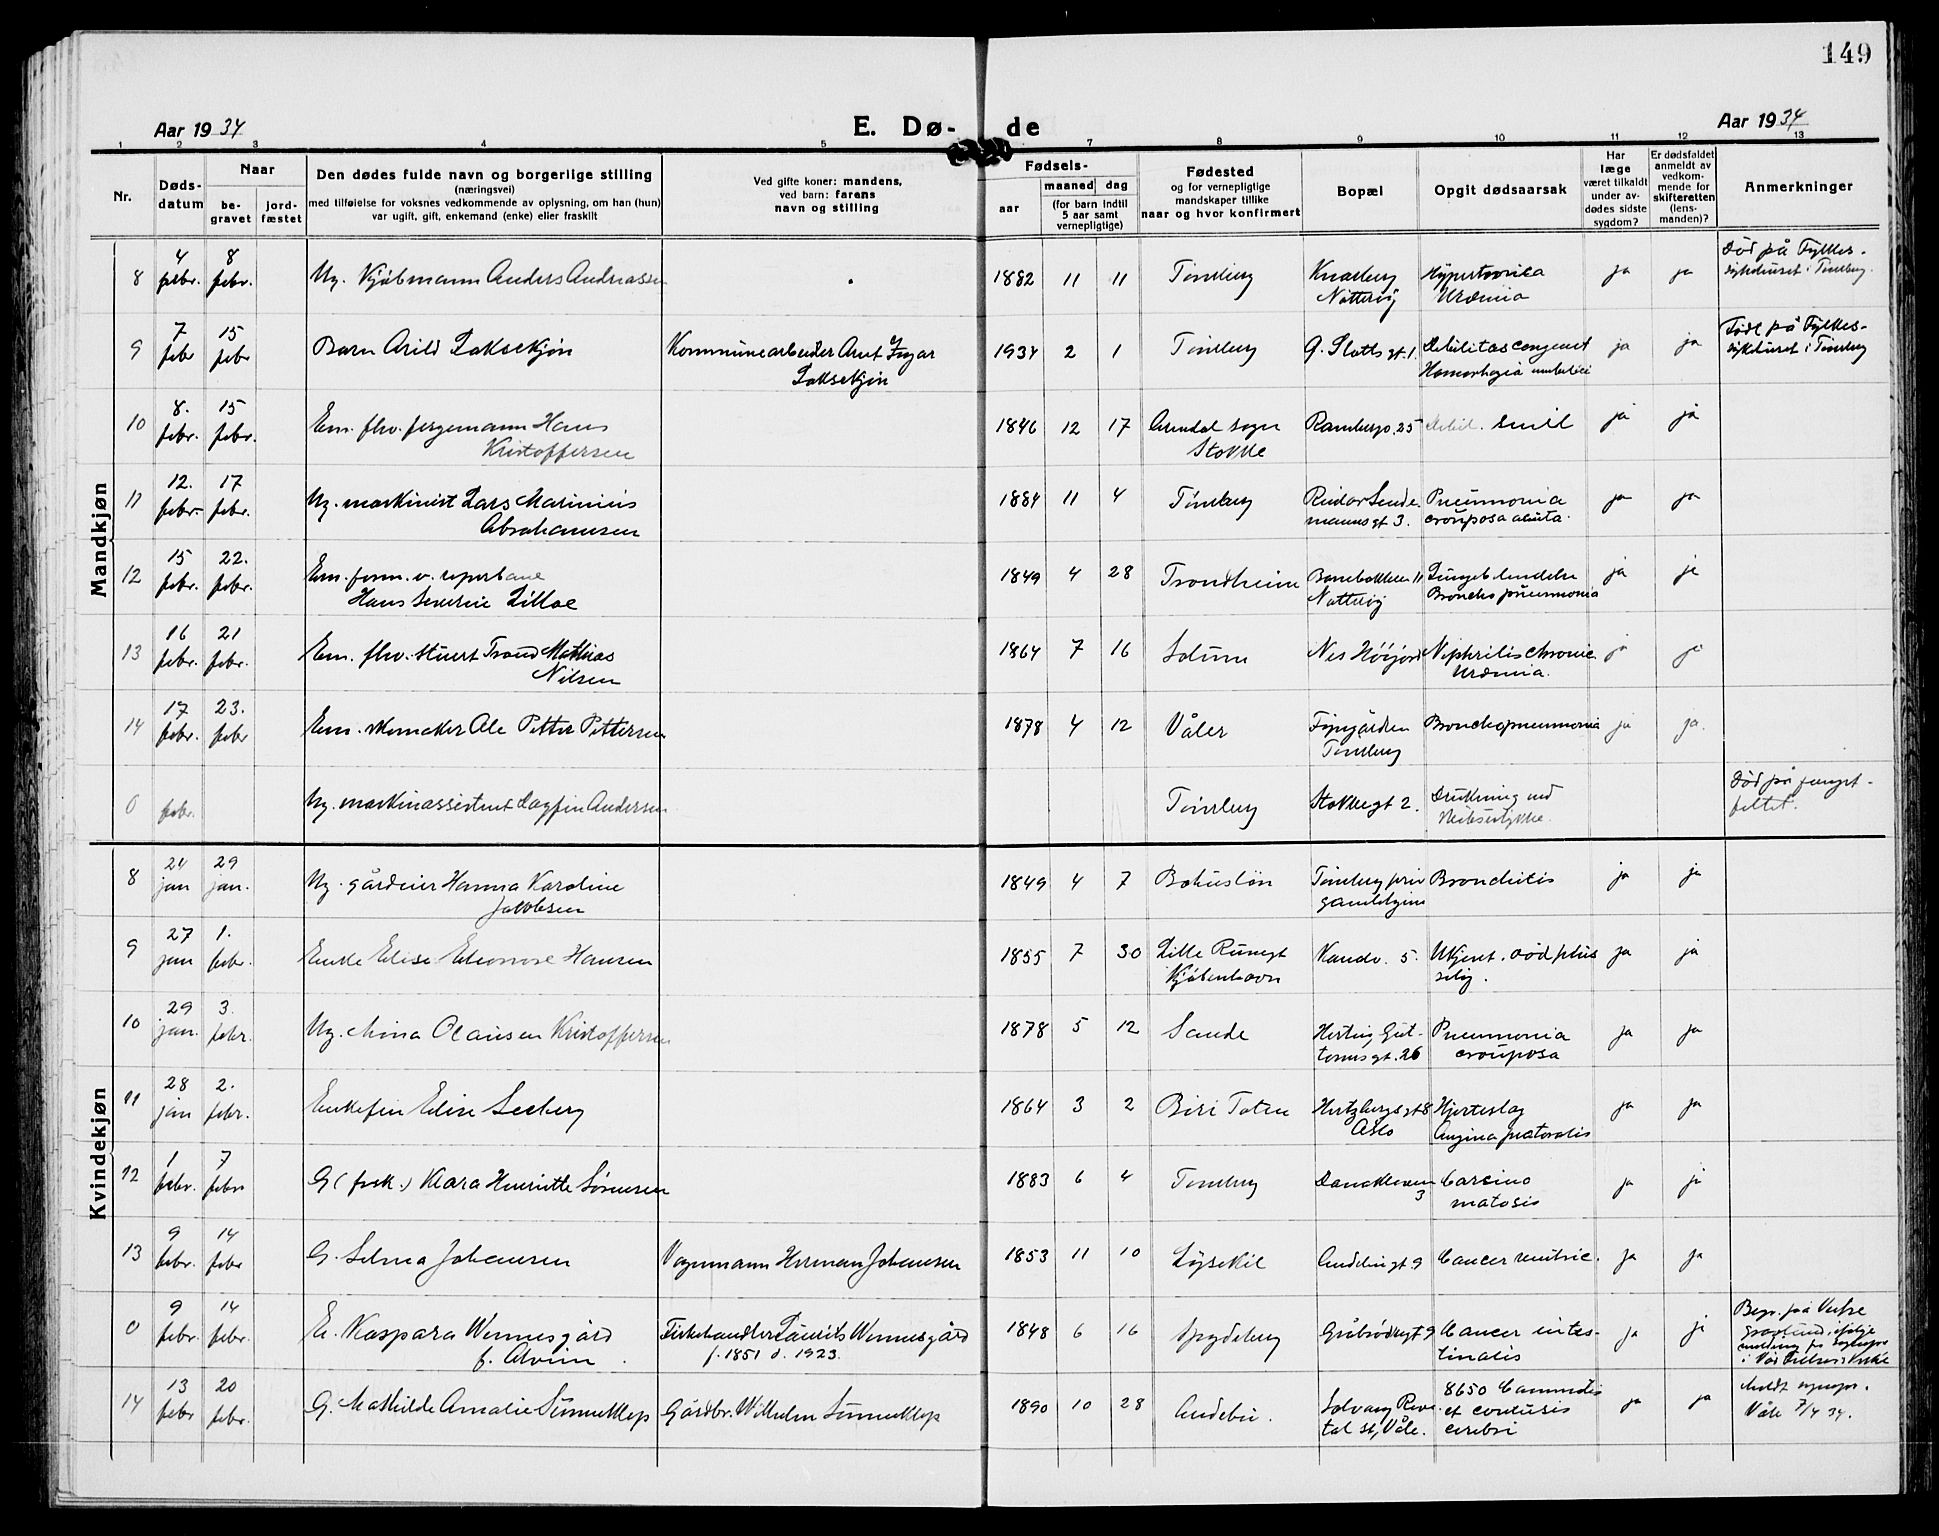 149
Aar 1934
E. Dø-
de
Aar 1934
1 2 3 4 5 7 8 9 10 11 12 13
Nr.
Døds-
datum
Naar
be-
gravet
jord-
fæstet
Den dødes fulde navn og borgerlige stilling
(næringsvei)
med tilføielse for voksnes vedkommende av oplysning, om han (hun)
var ugift, gift, enkemand (enke) eller fraskilt
Ved gifte koner: mandens,
ved barn: farens
navn og stilling
Fødsels-
aar
maaned
dag
(for barn indtil
5 aar samt
vernepligtige)
Fødested
og for vernepligtige
mandskaper tillike
naar og hvor konfirmert
Bopæl
Opgit dødsaarsak
Har
læge
været tilkaldt
under av-
dødes sidste
sygdom?
Er dødsfaldet
anmeldt av
vedkom-
mende for
skifteretten
(lens-
manden)?
Anmerkninger
Mandkjøn
8 4 febr. 8 febr. Ug. Kjøbmann Anders Andreassen 1882 11 11 Tønsberg Knarberg Nøtterøy Hypertonica Uræmia ja ja Död på Fylkes-
sykehuset i Tønsberg.
9 7 febr 15 febr Barn Arild Laksekjøn Kommunearbeider Arnt Ingar
Laksekjøn 1934 2 1 Tønsberg G. Slotts gt. 1. Debilitas congenit ja ja Födt på Fylkes-
Hæmorhagia umbilici sykehuset i Tønsberg
10 8. febr. 15 febr. Em. fhv. fergemann Hans
Kristoffersen 1846 12 17 Arendal sogn
Stokke Rambergv. 25 Debil. senil ja ja
11 12. febr. 17 febr. Ug. maskinist Lars Marinius
Abrahamsen 1884 11 4 Tønsberg Reidar Sende-
manns gt 3. Pneumonia
crouposa acuta. ja ja
12 15 febr. 22. febr. Em. form. v. reperbane
Hans Severin Lilloe 1849 4 28 Trondheim 11
Nøtterøy Lungebetendelse
Broncho pneumonia ja ja
13 16 febr. 21 febr. Em. fhv. stuert Trond Mathias
Nilsen 1864 7 16 Solum Nes Höijord Nephritis chronic.
Uræmia. ja ja
14 17 febr. 23. febr Em. Ole Petter Pettersen 1878 4 12 Våler
Tønsberg Bronchopneumonia ja ja.
0 febr. Ug. maskinassistent Dagfin Andersen Tønsberg Stokkegt 2. Drukning ved Död på fangst-
feltet.
Kvindekjøn
8 24 jan 29 jan. Ug. Hanna Karoline
Jakobsen 1849 4 7 Bohuslän Tønsberg priv
gamlehjem Bronchitis ja ja
9 27 jan 1. febr. Enke Elise Eleonore Hansen 1855 7 30 Lille Kongt
Kjøbenhavn 5. Ukjent. död plud
selig. ja ja
10 29 jan. 3. febr. Ug. Mina Olausen Kristoffersen 1878 5 12 Sande Hertug Gut-
torms gt. 26 Pneumonia
crouposa ja ja
11 28 jan 2. febr. Enkefru Elise Seeberg 1864 3 2 Biri Toten Hertzbergs gt 8
Oslo Hjerteslag
Angina pectoralis ja ja
12 1 febr. 7 febr G (frsk.) Klara Henriette Sørensen 1883 6 4 Tønsberg 3 Carcino
matosis ja ja
13 9 febr. 14 febr G. Selma Johansen Vognmann Herman Johansen 1853 11 10 Lysekil 9 Cancer ventric. ja ja
0 9 febr. 14 febr. E. Kaspara Wennesgård
f. Alvim Fiskehandler Laurits Wennesgård
f. 1851 d. 1923. 1848 6 16 Spydeberg Gråbrødregt 9 Cancer intes-
tinalis ja ja
14 13 febr 20 febr. G. Mathilde Amalie Sønneklep Gårdbr. Wilhelm Sønneklep 1890 10 28 Andebu. Solvang Reve-
tal st, Våle. 8650 Commotio
et contusio
cerebri ja ja Meldt sognepr.
Våle 7/4 34.